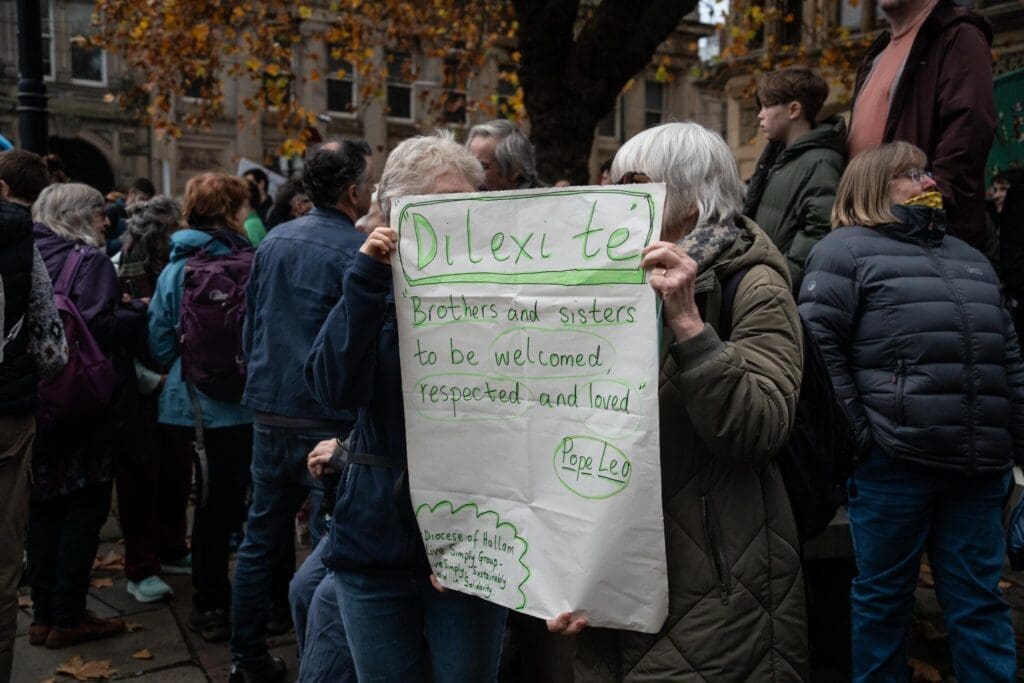 Dilexi té
"Brothers and sisters
to be welcomed,
respected and loved"
Pope Leo
Diocese of Hallam
Live Simply Group -
Live Simply, Sustainably
in Solidarity